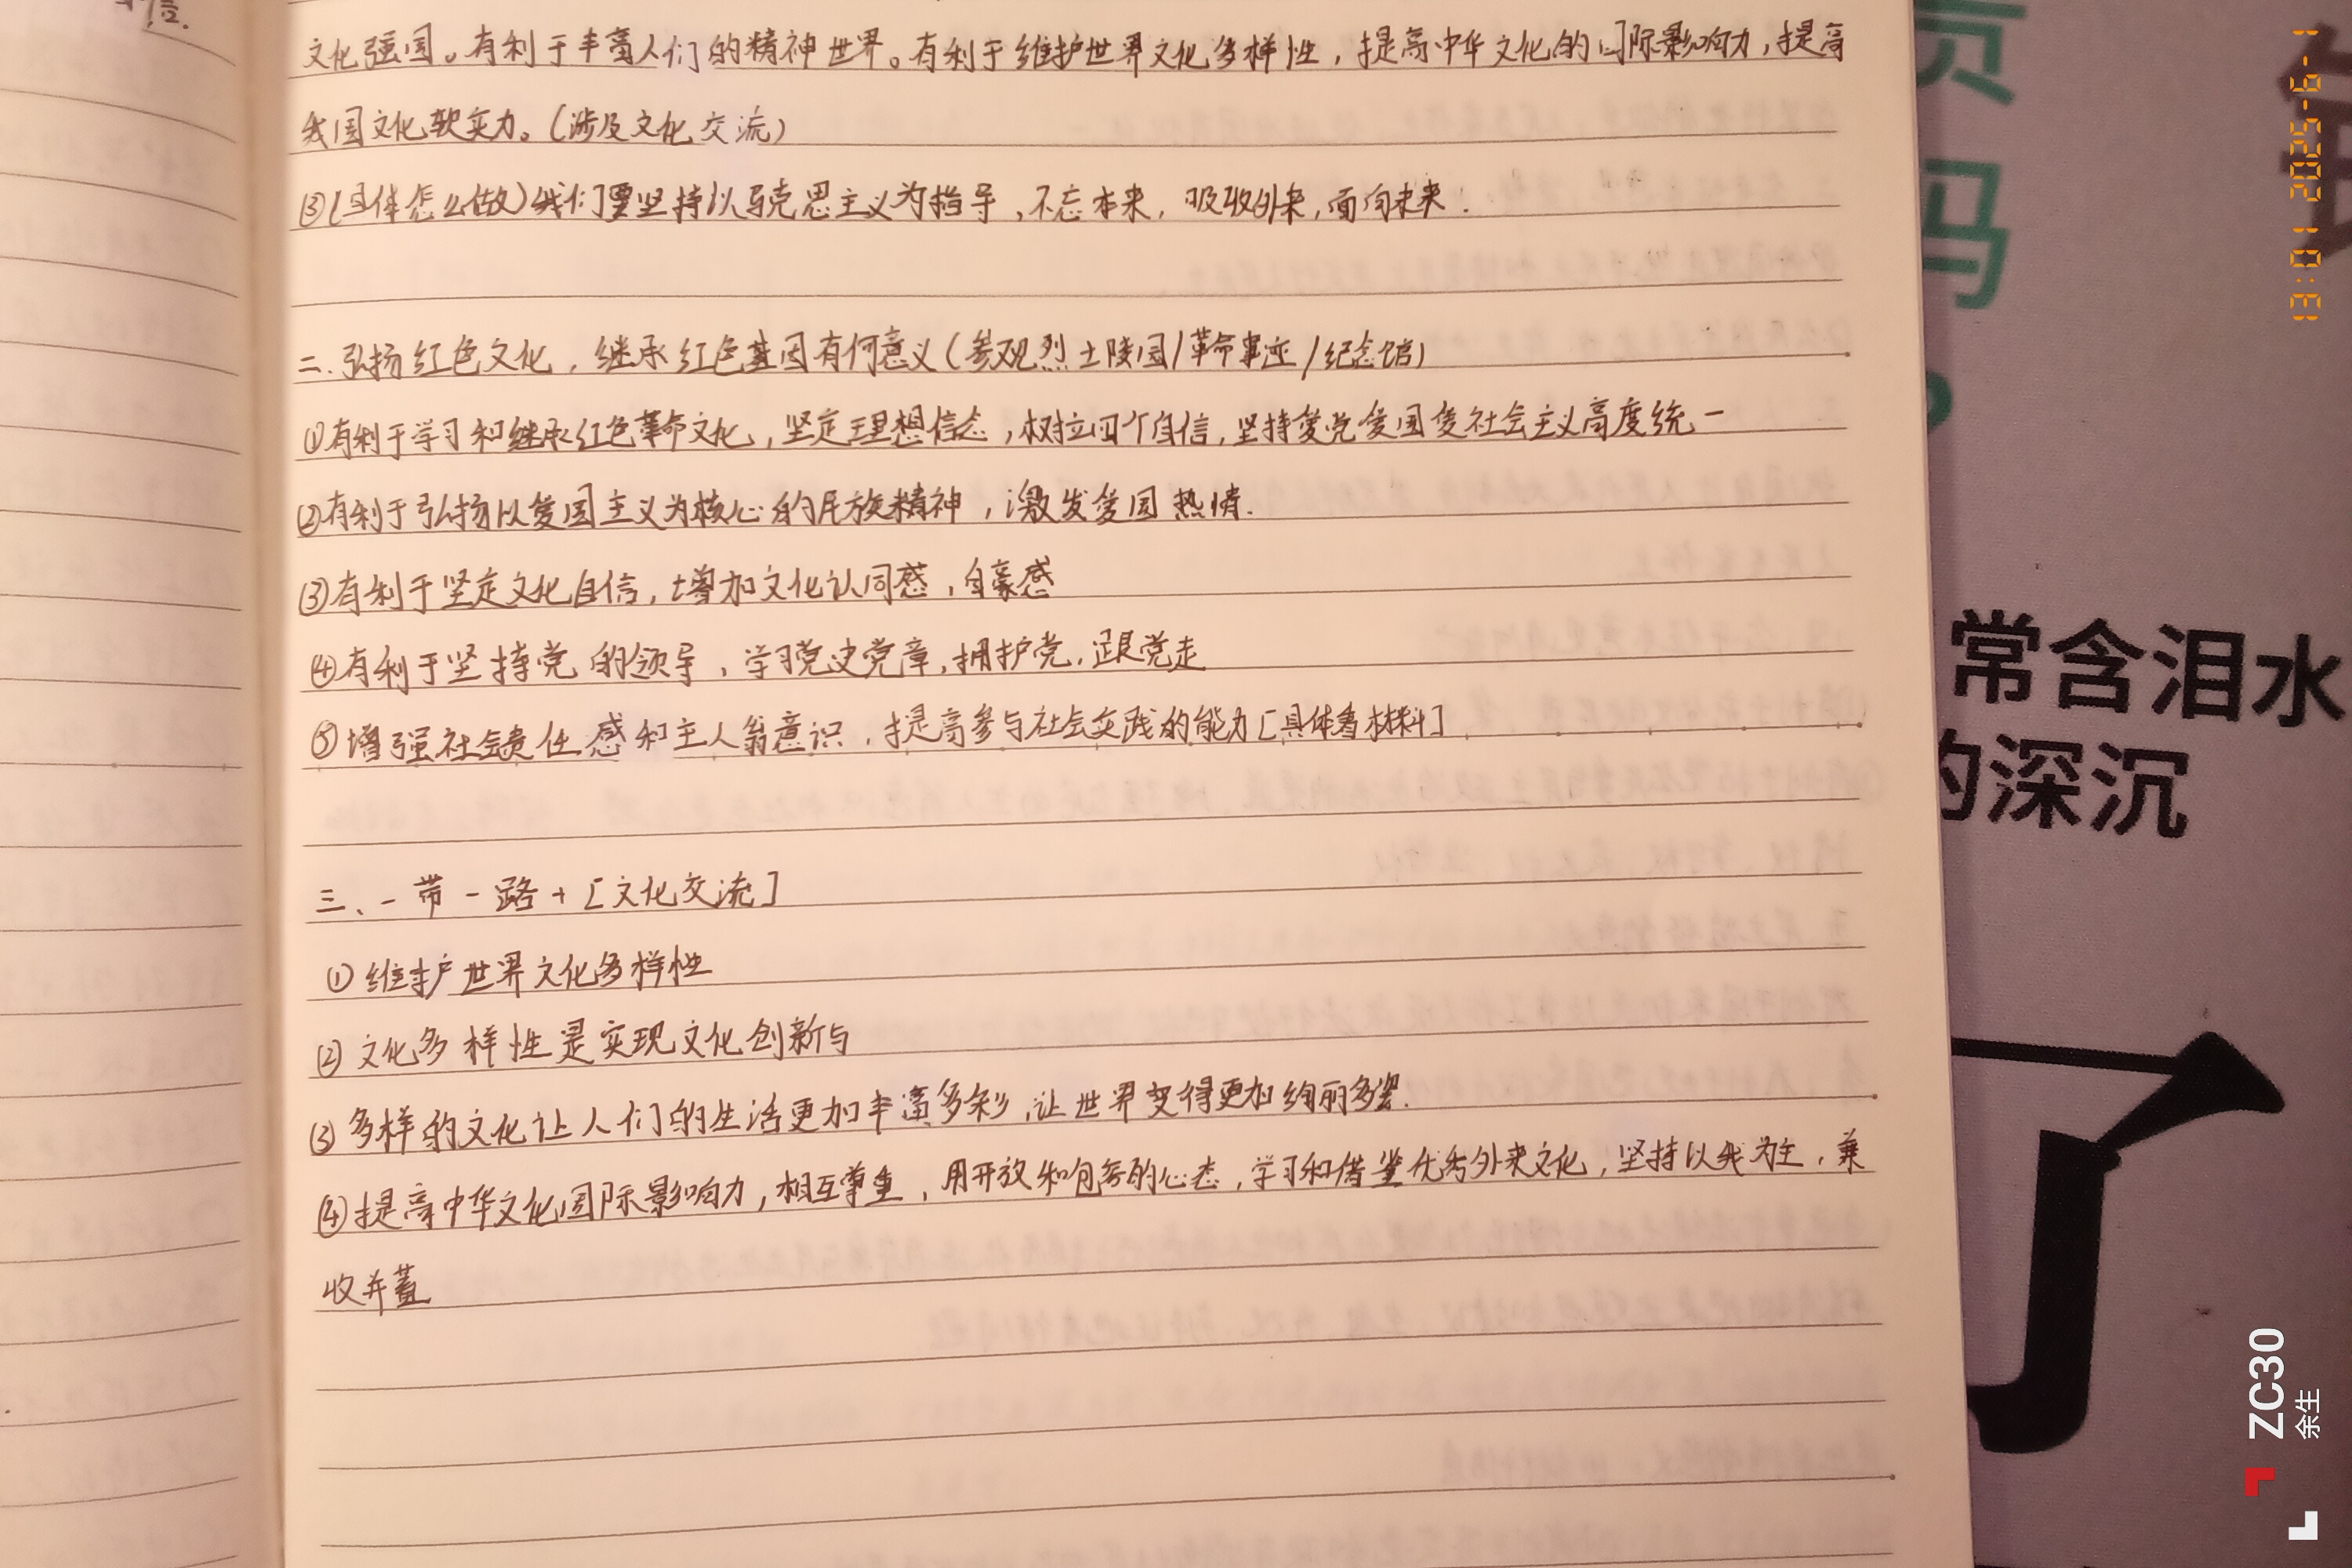 文化强国。有利于丰富人们的精神世界。有利于维护世界文化多样性，提高中华文化的国际影响力，提高
我国文化软实力。（涉及文化交流）
③(具体怎么做)我们要坚持以马克思主义为指导，不忘本来，吸收外来，面向未来.
二.弘扬红色文化，继承红色基因有何意义（参观烈士陵园/革命事迹/纪念馆）
①有利于学习和继承红色革命文化，坚定理想信念，树立四个自信，坚持爱党爱国爱社会主义高度统一
②有利于弘扬以爱国主义为核心的民族精神，激发爱国热情.
③有利于坚定文化自信，增加文化认同感，自豪感
④有利于坚持党的领导，学习党史党章，拥护党，跟党走
⑤增强社会责任感和主人翁意识，提高参与社会实践的能力[具体看材料]
三、一带一路+[文化交流]
①维护世界文化多样性
②文化多样性是实现文化创新与
③多样的文化让人们的生活更加丰富多彩，让世界变得更加绚丽多姿.
④提高中华文化国际影响力，相互尊重，用开放和包容的心态，学习和借鉴优秀外来文化，坚持以我为主，兼
收并蓄
常含泪水
的深沉
了
2025-9-1 10:18
ZC30
余生